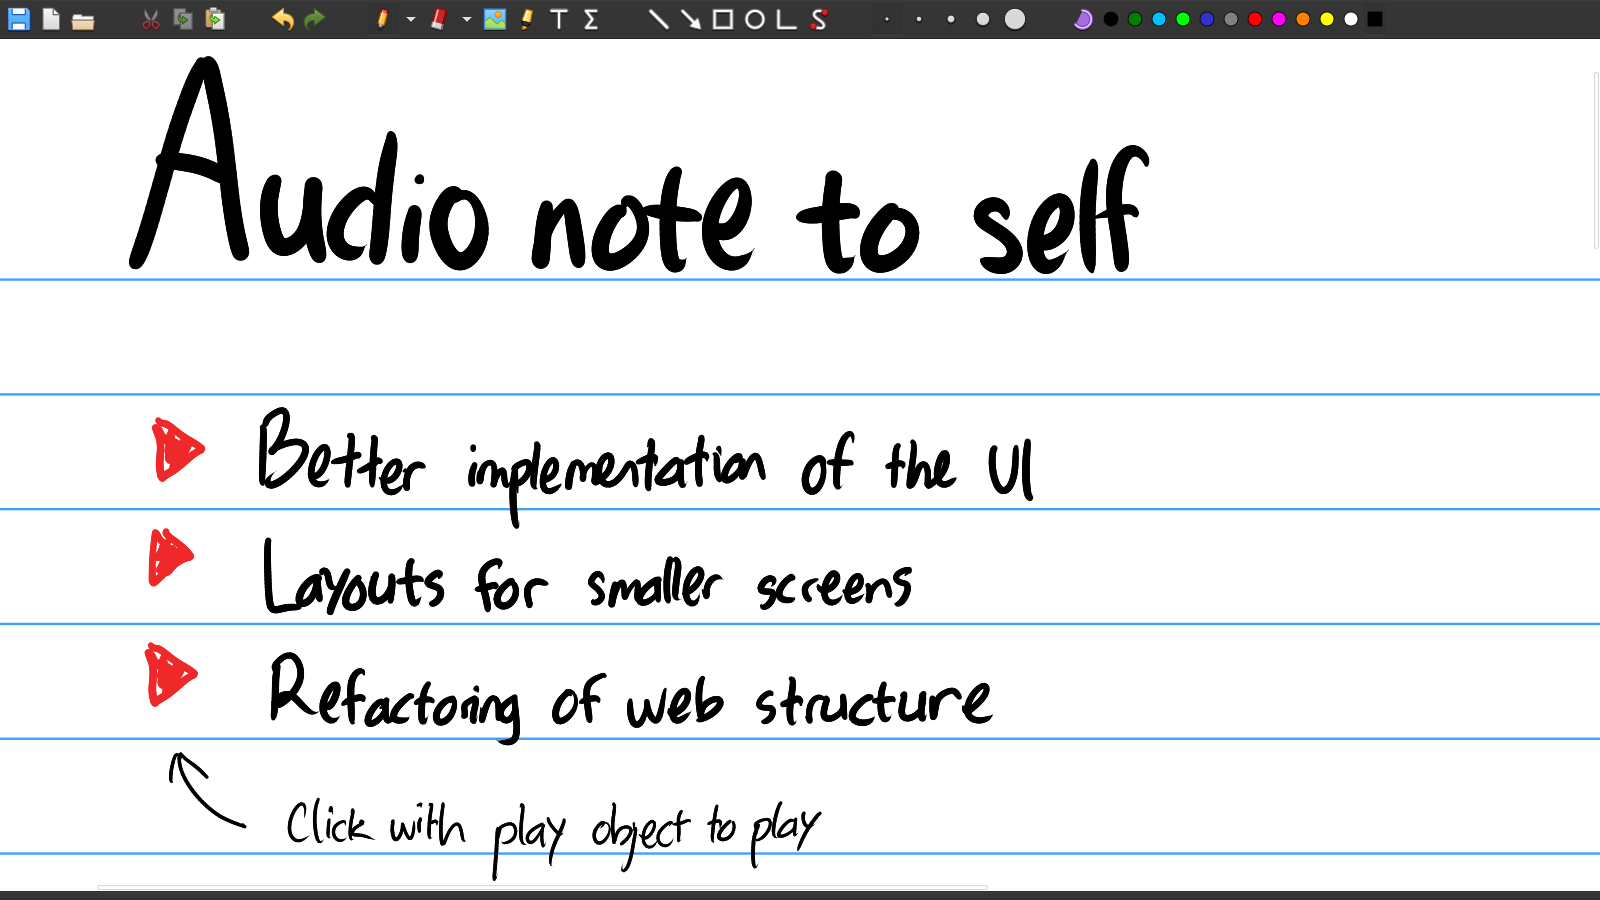 Audio note to self
Better implementation of the UI
Layouts for smaller screens
Refactoring of web structure
Click with play object to play